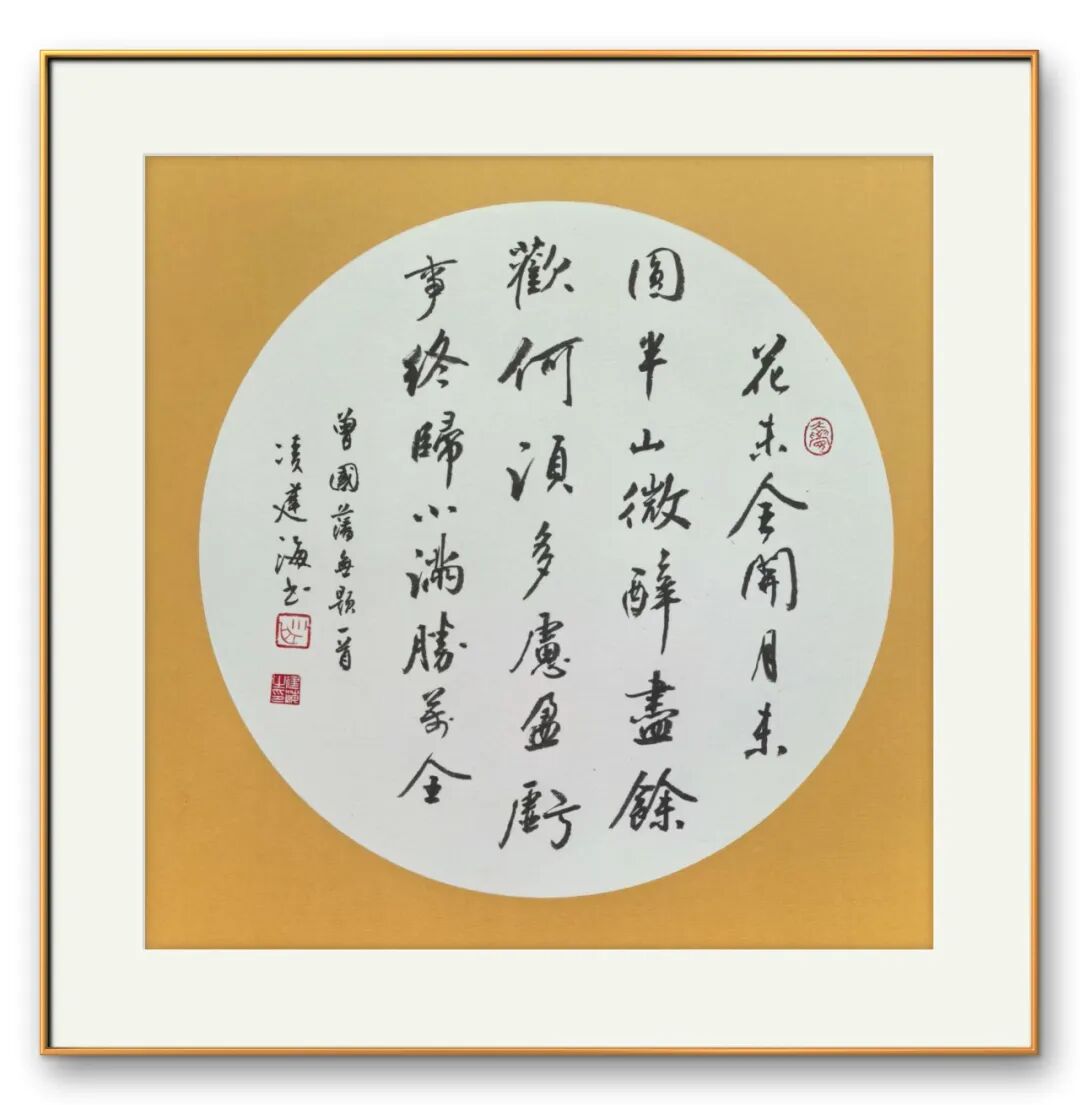 花未全開月未
圓半山微醉盡餘
歡何須多慮盈虧
事終歸小滿勝萬全
曾國藩無題一首
凌建海书